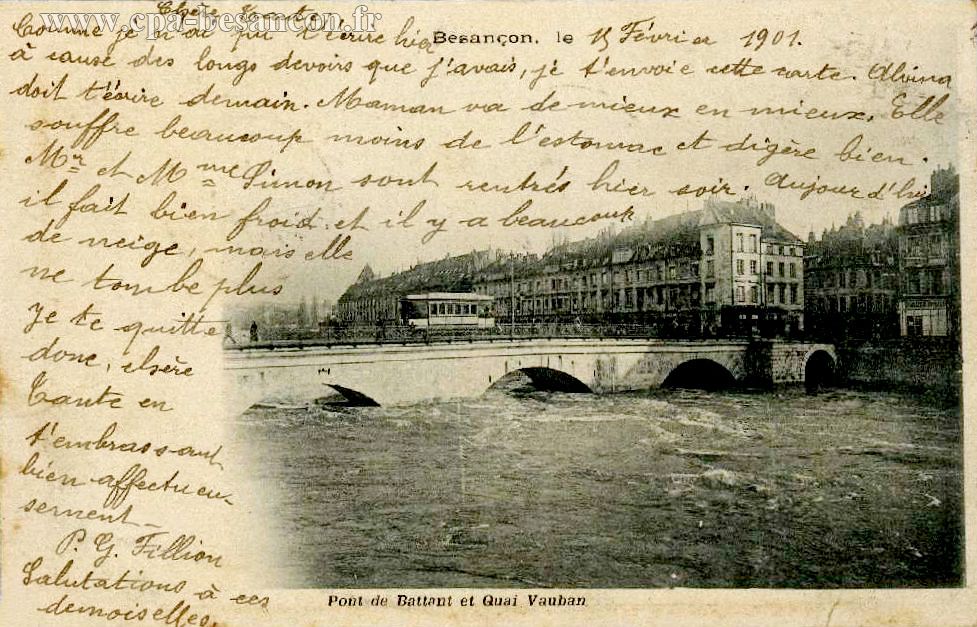 www.cpa-besancon.fr
Besançon, le 15 Février 1901.
Chère Tante
Comme je n'ai pu t'écrire hier
à cause des longs devoirs que j'avais, je t'envoie cette carte. Alvina
doit t'écrire demain. Maman va de mieux en mieux. Elle
souffre beaucoup moins de l'estomac et digère bien.
Mr et Mme Simon sont rentrés hier soir. Aujourd'hui
il fait bien froid et il y a beaucoup
de neige, mais elle
ne tombe plus
Je te quitte
donc, chère
Tante en
t'embrassant
bien affectueu-
sement
P. G. Fillion
Salutations à ces
demoiselles.
Pont de Battant et Quai Vauban